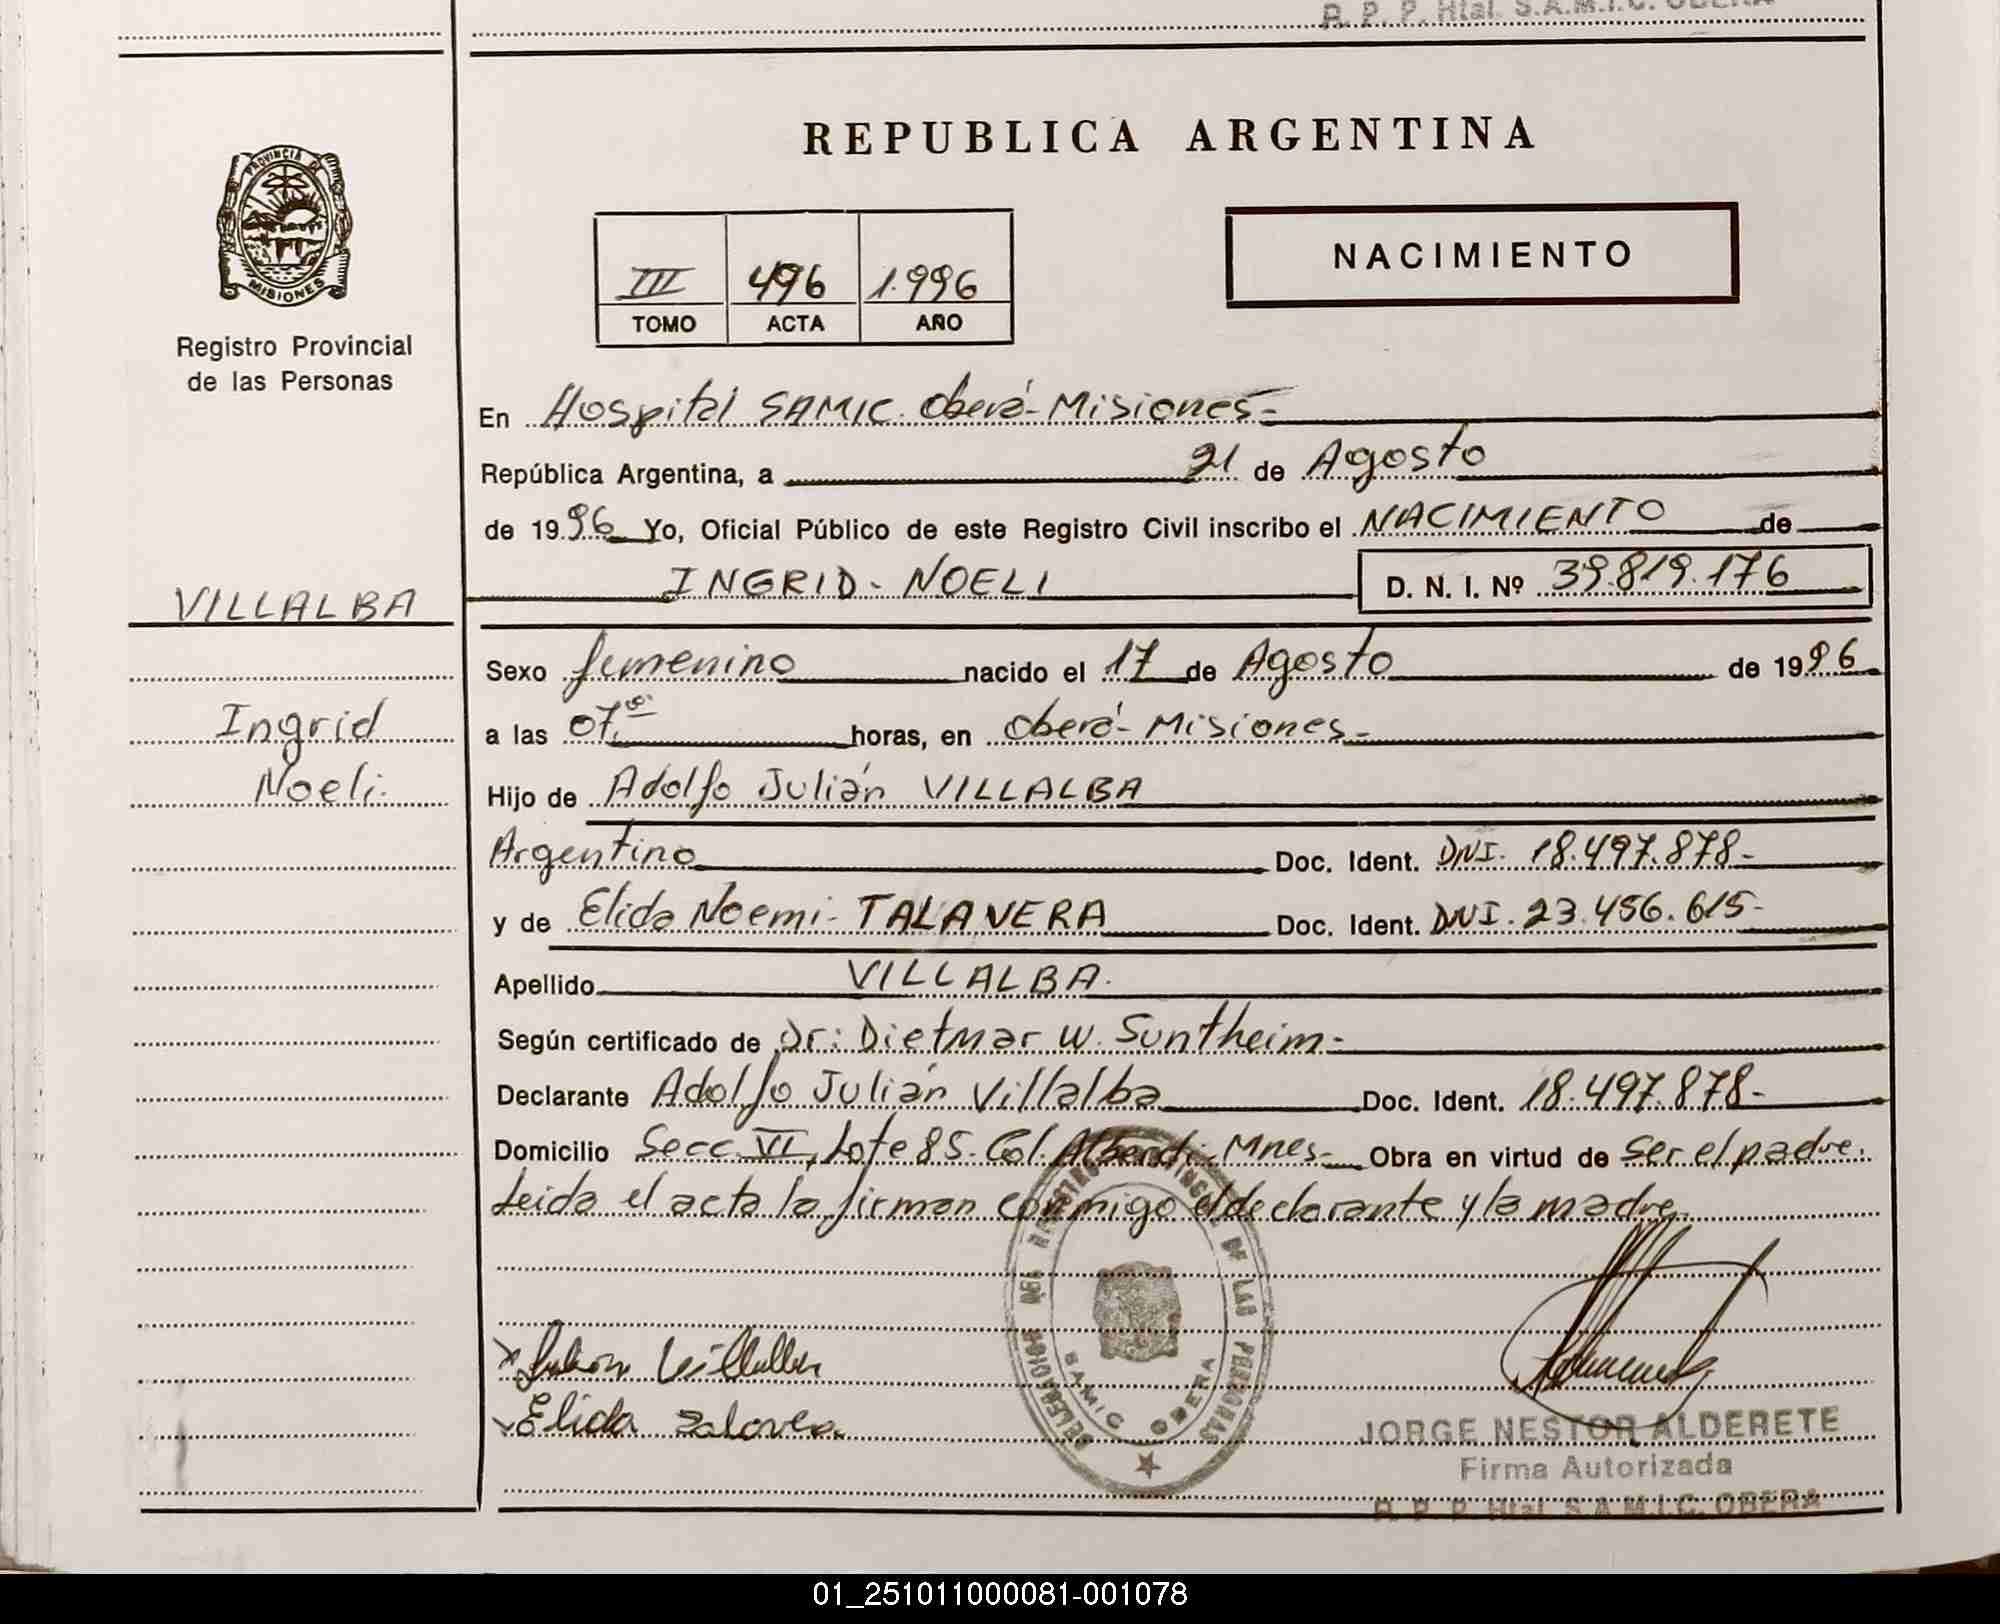 R. P. P. Htal. S.A.M.I.C. OBERA
REPUBLICA ARGENTINA
PROVINCIA DE
MISIONES
Registro Provincial
de las Personas
NACIMIENTO
III 496 1.996
TOMO ACTA AÑO
En Hospital SAMIC. Oberá-Misiones-
República Argentina, a 21 de Agosto
de 1996 Yo, Oficial Público de este Registro Civil inscribo el NACIMIENTO de
INGRID-NOELI D. N. I. Nº 39.819.176
VILLALBA
Sexo femenino nacido el 17 de Agosto de 1996
Ingrid
Noeli.
a las 07,00 horas, en Oberá-Misiones-
Hijo de Adolfo Julián VILLALBA
Argentino Doc. Ident. DNI. 18.497.878-
y de Elida Noemi-TALAVERA Doc. Ident. DNI. 23.456.615-
Apellido VILLALBA.
Según certificado de Dr: Dietmar W. Suntheim-
Declarante Adolfo Julián Villalba Doc. Ident. 18.497.878-
Domicilio Secc. VI, Lote 85-Col. Alberdi-Mnes- Obra en virtud de ser el padre.
Leida el acta la firman conmigo el declarante y la madre.
DE LAS PERSONAS
SAMIC OBERA
Julian Villalba
Elida Talavera
JORGE NESTOR ALDERETE
Firma Autorizada
R. P. P. Htal. S.A.M.I.C. OBERA
01_251011000081-001078